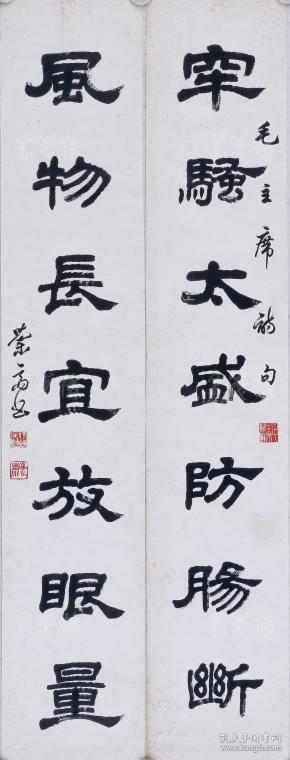 牢騷太盛防腸斷
毛主席詩句
風物長宜放眼量
孔夫子旧书网